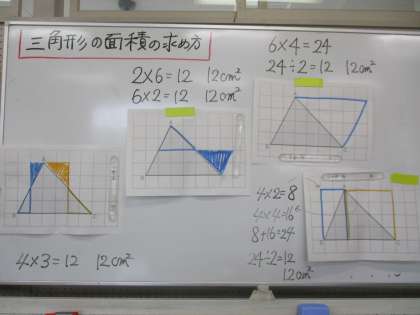 三角形の面積の求め方
2×6=12 12cm²
6×2=12 12cm²
6×4=24
24÷2=12 12cm²
4×3=12 12cm²
4×2=8
4×4=16
8+16=24
24÷2=12
12cm²